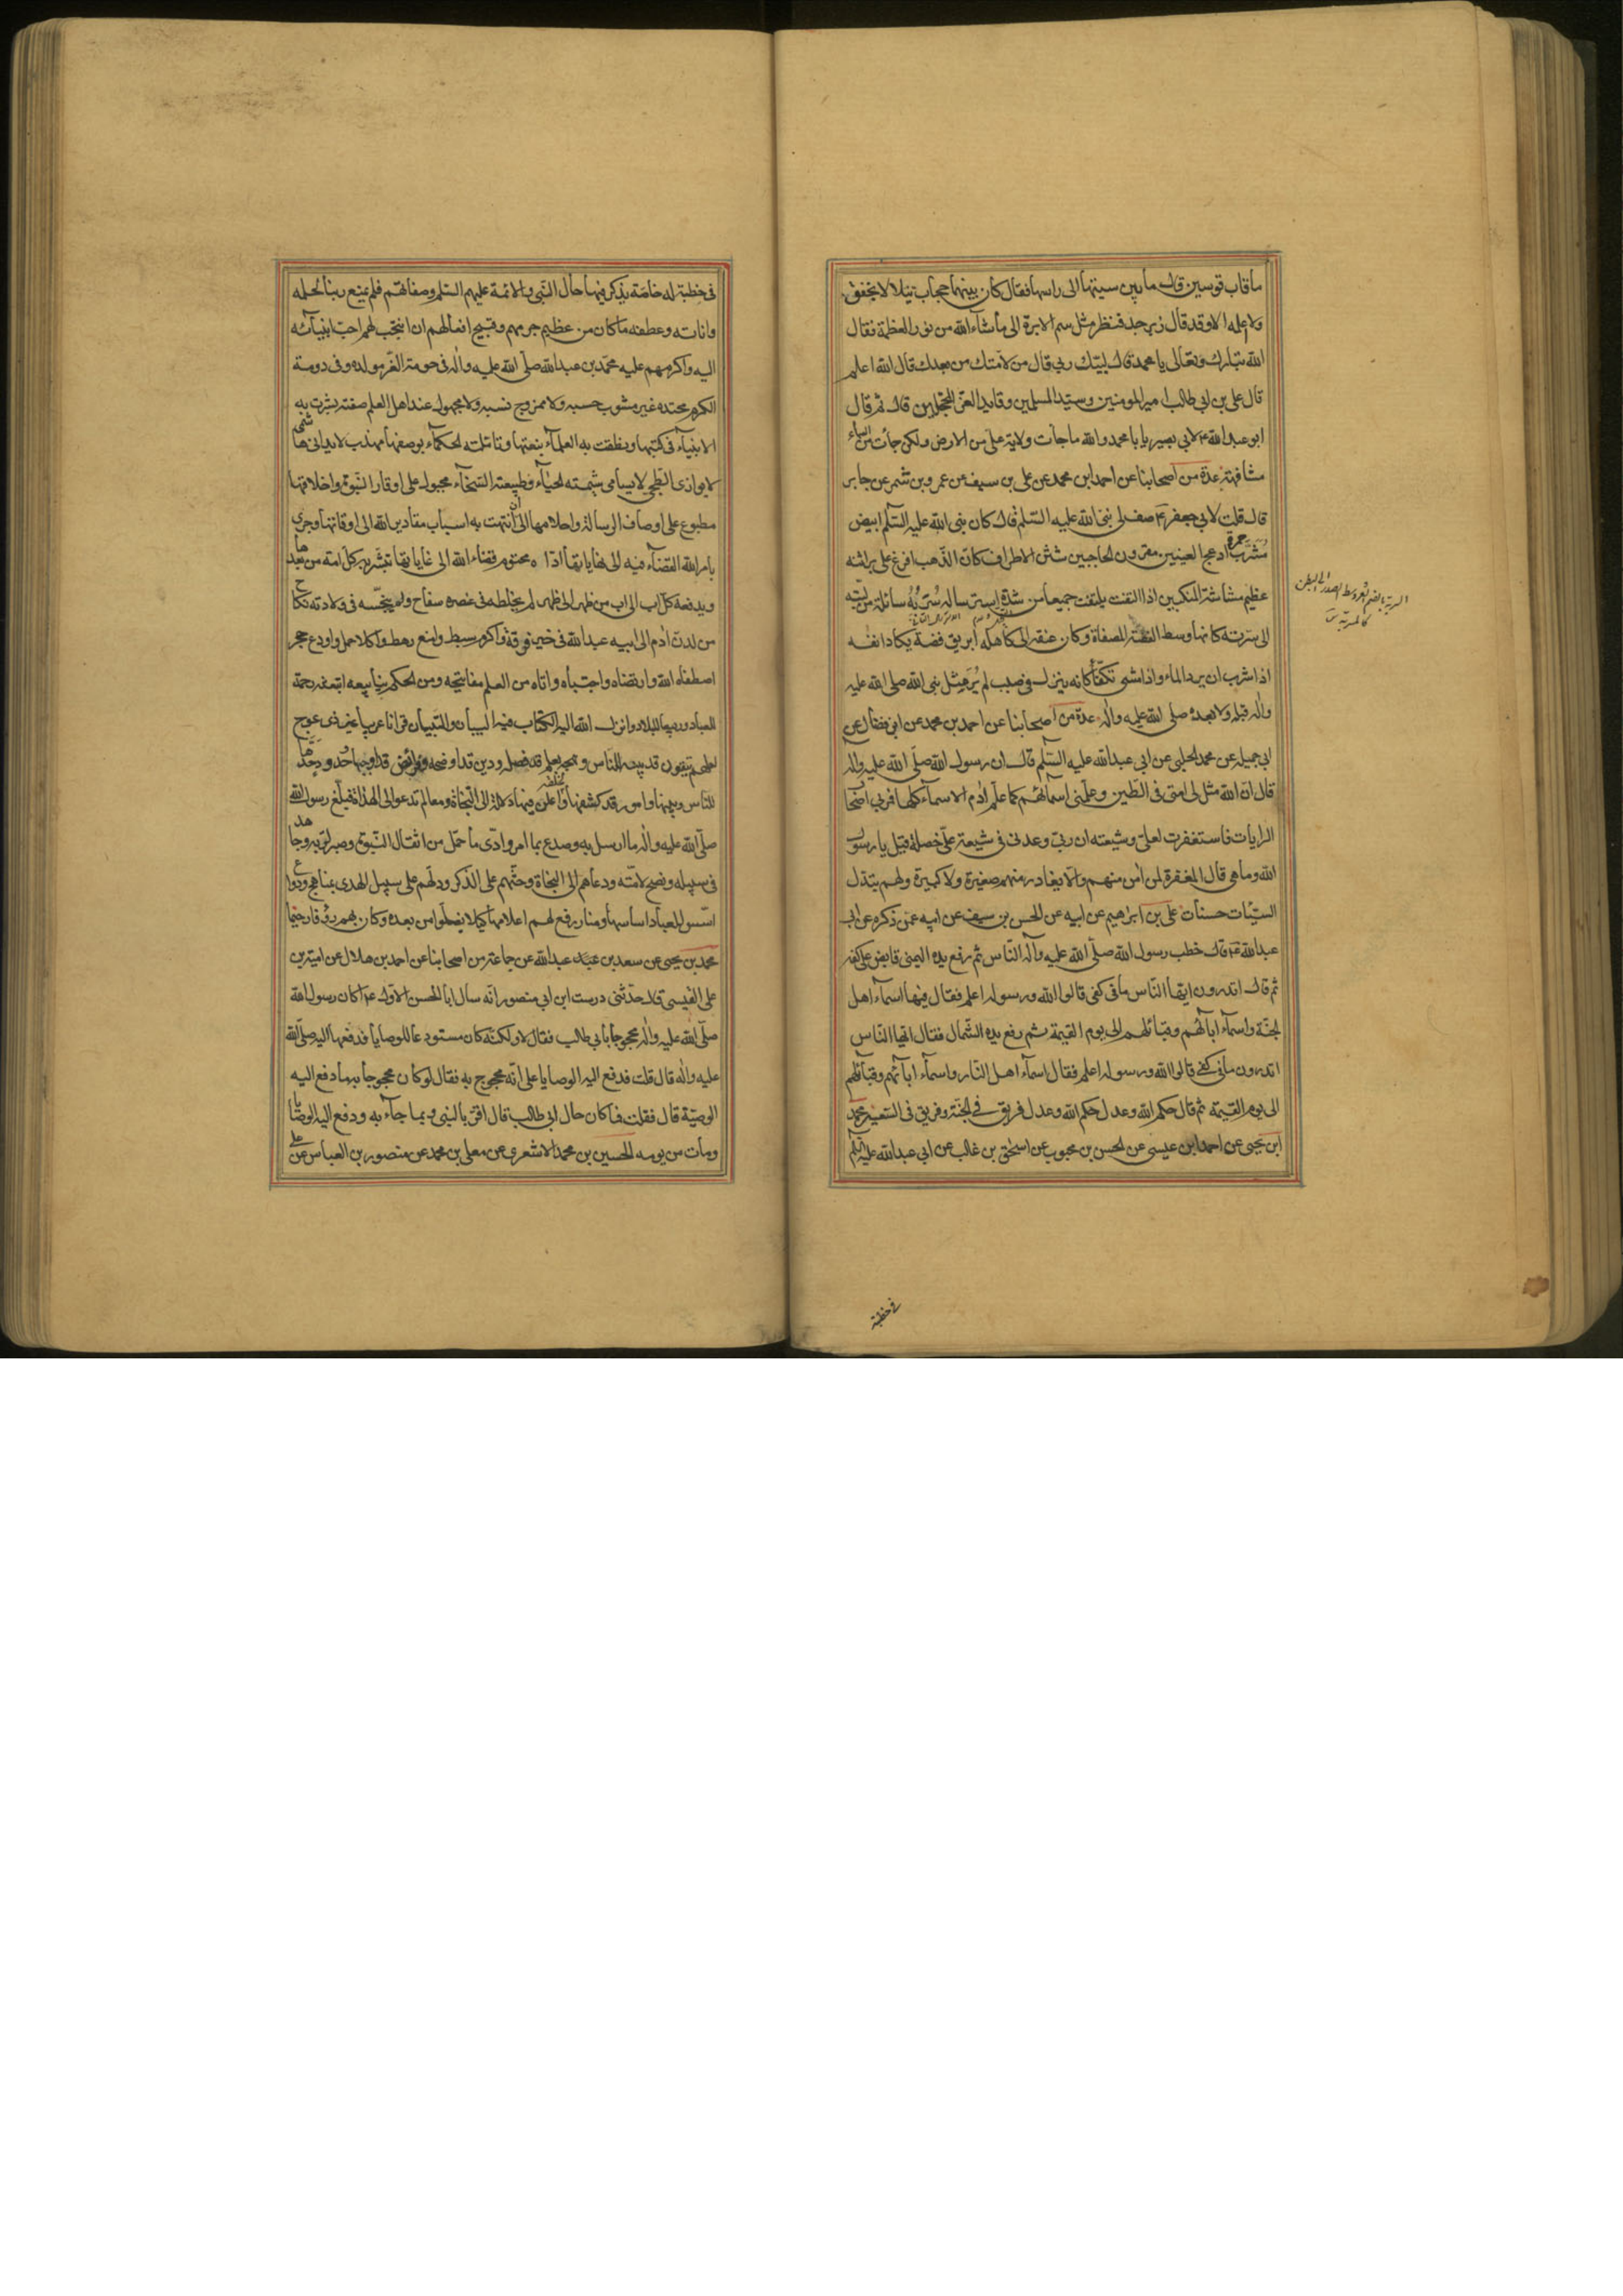 ما قاب قوسين قال ما بين سيتها الى راسها فقال كان بينهما حجاب يتلالا يخفق
ولا اعلمه الا وقد قال زبرجد فنظر مثل سم الابرة الى ما شاء الله من نور العظمة فقال
الله تبارك وتعالى يا محمد قال لبيك ربي قال من لامتك من بعدك قال الله اعلم
قال علي بن ابي طالب امير المومنين وسيد المسلمين وقايد الغر المحجلين قال ثم قال
ابو عبد الله ع لابي بصير يا با محمد والله ما جاءت ولاية علي من الارض ولكن جائت من السماء
مشافهة عدة من اصحابنا عن احمد ابن محمد عن علي بن سيف عن عمرو بن شمر عن جابر
قال قلت لابي جعفر ع صف لي نبي الله عليه السلم قال كان نبي الله عليه السلم ابيض
مشرب حمرة ادعج العينين مقرون الحاجبين شثن الاطراف كان الذهب افرغ على براثنه
عظيم مشاشة المنكبين اذا التفت يلتفت جميعا من شدة استرساله سربة سائلة من لبته
الى سرته كانها وسط الفضة المصفاة وكان عنقه الى كاهله ابريق فضة يكاد انفه
اذا شرب ان يرد الماء واذا مشى تكفأ كانه ينزل في صبب لم ير مثل نبي الله صلى الله عليه
واله قبله ولا بعده صلى الله عليه واله عدة من اصحابنا عن احمد بن محمد عن ابن فضال عن
ابي جميلة عن محمد الحلبي عن ابي عبد الله عليه السلم قال ان رسول الله صلى الله عليه واله
قال ان الله مثل لي امتي في الطين وعلمني اسمائهم كما علم ادم الاسماء كلها فمر بي اصحا
الرايات فاستغفرت لعلي وشيعته ان ربي وعدني في شيعة علي خصلة قيل يا رسول
الله وما هي قال المغفرة لمن امن منهم والا يغادر منهم صغيرة ولا كبيرة ولهم يتبدل
السيئات حسنات علي بن ابراهيم عن ابيه عن الحسن بن سيف عن ابيه عمن ذكره عن ابي
عبد الله ع قال خطب رسول الله صلى الله عليه واله الناس ثم رفع يده اليمنى قابض على كفه
ثم قال اتدرون ايها الناس ما في كفي قالوا الله ورسوله اعلم فقال فيها اسماء اهل
الجنة واسماء ابائهم وقبائلهم الى يوم القيمة ثم رفع يده الشمال فقال ايها الناس
اتدرون ما في كفي قالوا الله ورسوله اعلم فقال اسماء اهل النار واسماء ابائهم وقبائلهم
الى يوم القيمة ثم قال حكم الله وعدل حكم الله وعدل فريق في الجنة وفريق في السعير محمد
ابن يحيى عن احمد ابن عيسى عن الحسن بن محبوب عن اسحق بن غالب عن ابي عبد الله عليه السلم
السربة بالضم شعر وسط الصدر الى البطن
كالمسربة
في خطبة
في خطبة له خاصة يذكر فيها حال النبي والائمة عليهم السلم وصفاتهم فلم يمنع ربنا لحلمه
واناته وعطفه ما كان من عظيم جرمهم وقبيح افعالهم ان انتجب لهم احب انبيائه
اليه واكرمهم عليه محمد بن عبد الله صلى الله عليه واله في حومة العز مولده وفي دومة
الكرم محتده غير مشوب حسبه ولا ممزوج نسبه ولا مجهول عند اهل العلم صفته بشرت به
الانبياء في كتبها ونطقت به العلماء بنعتها وتاملته الحكماء بوصفها مهذب لا يدانى هاشمي
لا يوازى ابطحي لا يسامى شيمته الحياء وطبيعته السخاء مجبول على اوقار النبوة واخلاقها
مطبوع على اوصاف الرسالة واحلامها الى ان انتهت به اسباب مقادير الله الى اوقاتها وجرى
بامر الله القضاء فيه الى نهاياتها اداه محتوم قضاء الله الى غاياتها تبشر به كل امة من بعدها
ويدفعه كل اب الى اب من ظهر الى ظهر لم يخلطه في عنصره سفاح ولم ينجسه في ولادته نكاح
من لدن ادم الى ابيه عبد الله في خير فرقة واكرم سبط وامنع رهط واكلا حمل واودع حجر
اصطفاه الله وارتضاه واجتباه واتاه من العلم مفاتيحه ومن الحكم ينابيعه ابتعثه رحمة
للعباد وربيعا للبلاد وانزل الله اليه الكتاب فيه البيان والتبيان قرانا عربيا غير ذي عوج
لعلهم يتقون قد بينه للناس ونهجه بعلم قد فصله ودين قد اوضحه وفرائض قد اوجبها وحدود حدها
للناس وبينها وامور قد كشفها لخلقه واعلن فيها دلالة الى النجاة ومعالم تدعو الى الهداة فبلغ رسول الله
صلى الله عليه واله ما ارسل به وصدع بما امر وادى ما حمل من اثقال النبوة وصبر لربه وجاهد
في سبيله ونصح لامته ودعاهم الى النجاة وحثهم على الذكر ودلهم على سبيل الهدى بمناهج ودواع
اسس للعباد اساسها ومنار رفع لهم اعلامها كيلا يضلوا من بعده وكان بهم رؤفا رحيما
محمد بن يحيى عن سعد بن عبد الله عن جماعة من اصحابنا عن احمد بن هلال عن امية بن
علي القيسي قال حدثني درست ابن ابي منصور انه سال ابا الحسن الاول ع اكان رسول الله
صلى الله عليه واله محجوجا بابي طالب فقال لا ولكنه كان مستودعا للوصايا فدفعها اليه صلى الله
عليه واله قال قلت فدفع اليه الوصايا على انه محجوج به فقال لو كان محجوجا به ما دفع اليه
الوصية قال فقلت فما كان حال ابي طالب قال اقر بالنبي وبما جاء به ودفع اليه الوصايا
ومات من يومه الحسين بن محمد الاشعري عن معلى بن محمد عن منصور بن العباس عن علي